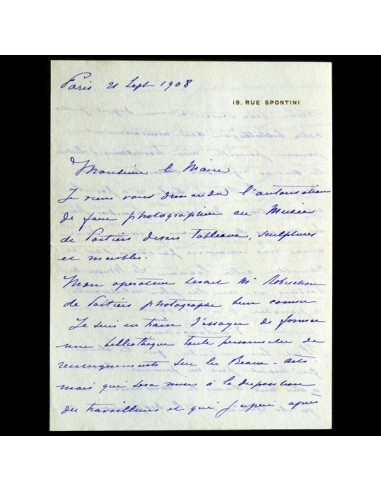 Paris 21 Sept 1908
19, RUE SPONTINI
Monsieur le Maire
Je viens vous demander l'autorisation
de faire photographier au Musée
de Poitiers divers tableaux, sculptures
et meubles.
Mon opérateur serait Mr
de Poitiers photographe bien connu
Je suis en train d'essayer de former
une bibliothèque toute personnelle de
renseignements sur les Beaux-Arts
mais qui sera mise à la disposition
des travailleurs et que j'espère après